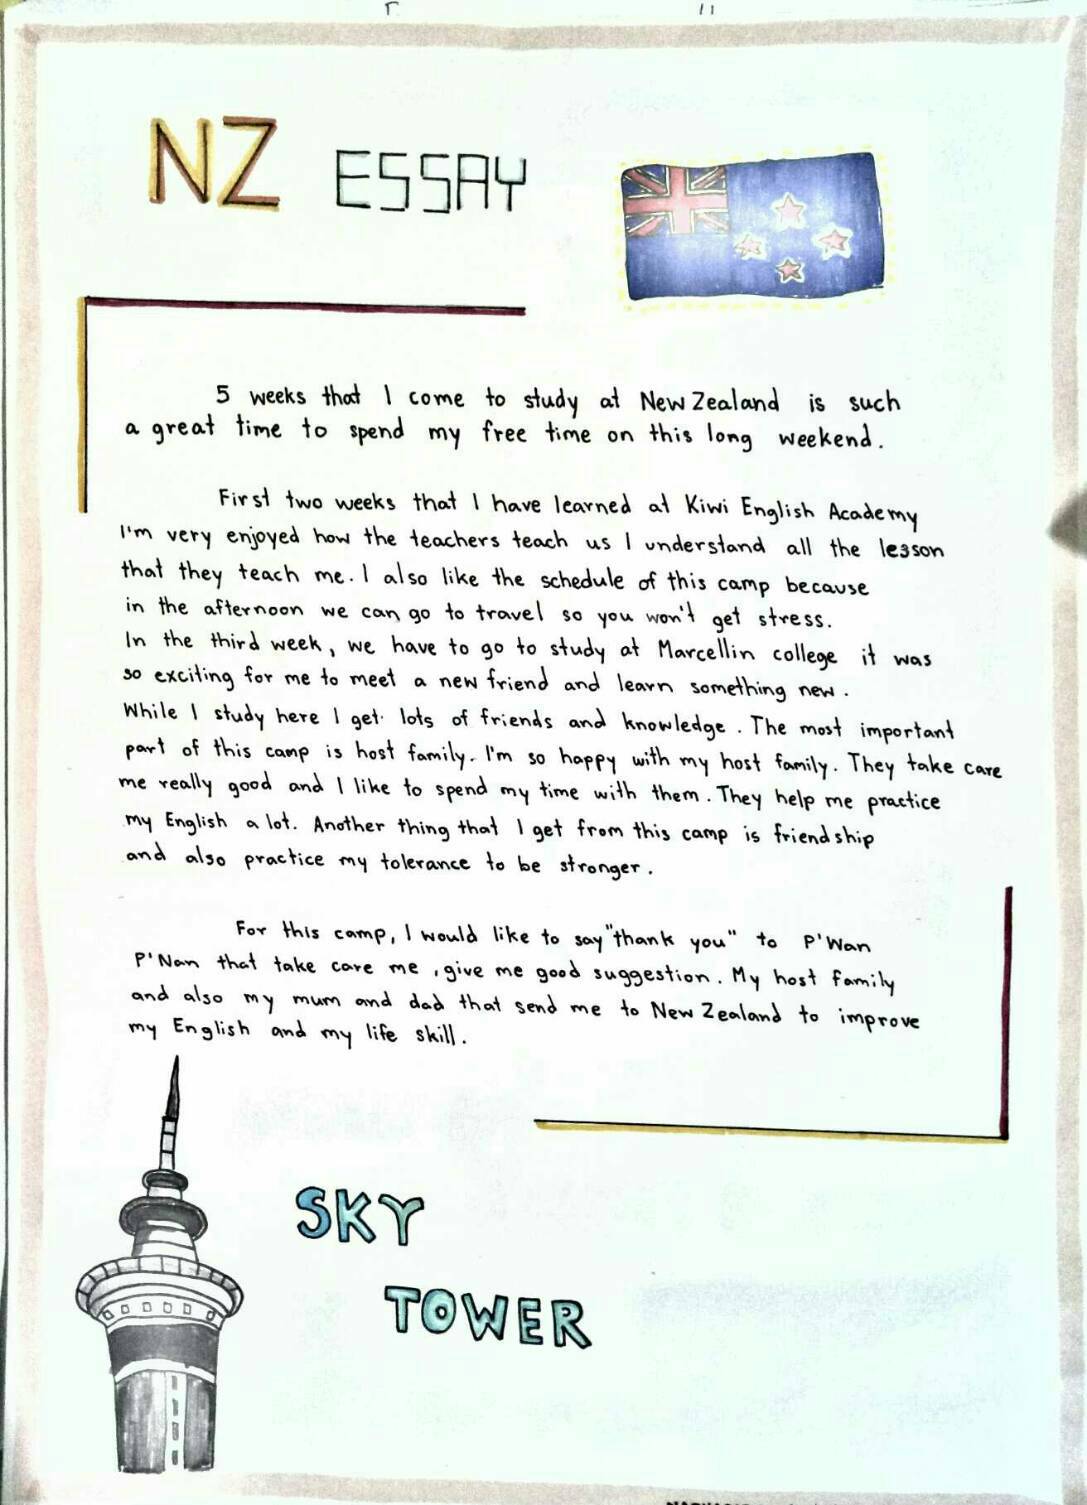 NZ ESSAY
5 weeks that I come to study at New Zealand is such
a great time to spend my free time on this long weekend.
First two weeks that I have learned at Kiwi English Academy
I'm very enjoyed how the teachers teach us I understand all the lesson
that they teach me. I also like the schedule of this camp because
in the afternoon we can go to travel so you won't get stress.
In the third week, we have to go to study at Marcellin college it was
so exciting for me to meet a new friend and learn something new.
While I study here I get lots of friends and knowledge. The most important
part of this camp is host family. I'm so happy with my host family. They take care
me really good and I like to spend my time with them. They help me practice
my English a lot. Another thing that I get from this camp is friendship
and also practice my tolerance to be stronger.
For this camp, I would like to say "thank you" to P'Wan
P'Nan that take care me, give me good suggestion. My host family
and also my mum and dad that send me to New Zealand to improve
my English and my life skill.
SKY
TOWER